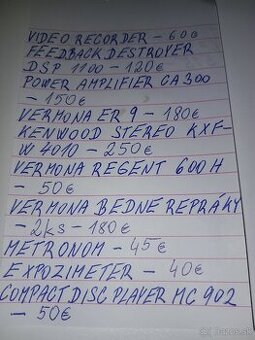 VIDEO RECORDER - 60€
FEEDBACK DESTROYER
DSP 1100 - 120€
POWER AMPLIFIER CA 300
- 150€
VERMONA ER 9 - 180€
KENWOOD STEREO KXF-
W 4010 - 250€
VERMONA REGENT 600 H
- 50€
VERMONA BEDNE REPRÁKY
- 2ks - 180€
METRONOM - 45€
EXPOZIMETER - 40€
COMPACT DISC PLAYER MC 902
- 50€